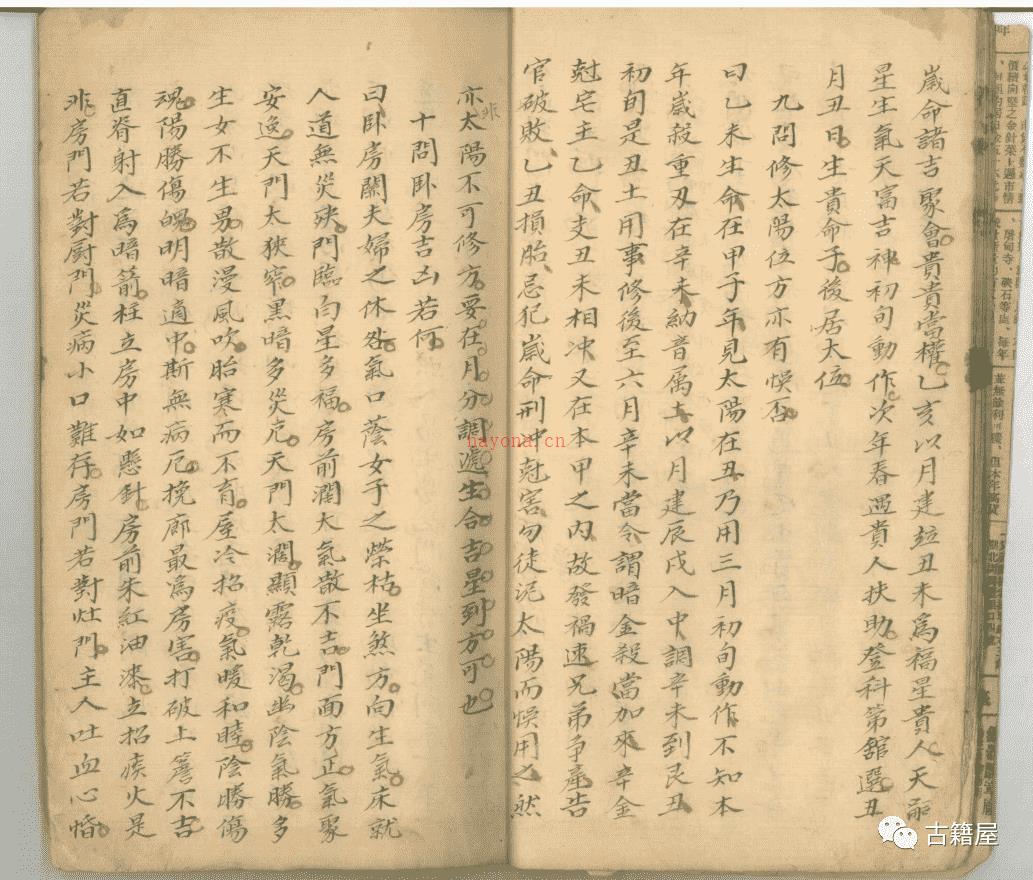 歲命諸吉聚會貴貴當權乙亥以月建竝丑未為福星貴人天嗣
星生氣天富吉神初旬動作次年春遇貴人扶助登科第舘選丑
月丑日生貴命子後居大位
九問修太陽位方亦有悞否
曰乙未生命在甲子年見太陽在丑乃用三月初旬動作不知本
年歲殺重刃在辛未納音屬土以月建辰戌入中調辛未到艮丑
初旬是丑土用事修後至六月辛未當令謂暗金殺當加來辛金
尅宅主乙命支丑未相冲又在本甲之内故發禍速兄弟争產告
官破敗乙丑損胎忌犯歲命刑冲尅害勿徒泥太陽而悞用之然
亦非太陽不可修方要在月分調遞生合吉星到方可也
十問卧房吉凶若何
曰卧房關夫婦之休咎氣口蔭女子之榮枯坐煞方向生氣床就
人道無災殃門臨白星多福房前濶大氣散不吉門面方正氣聚
安逸天門太狹窄黑暗多災危天門太濶顯露乾渴幽陰氣勝多
生女不生男散漫風吹胎寒而不育屋冷招疫氣暖和睦陰勝傷
魂陽勝傷魄明暗適中斯無病厄挽廊最為房害打破上簷不吉
直脊射入為暗箭柱立房中如懸針房前朱紅油漆立招痰火是
非房門若對厨門災病小口難存房門若對灶門主人吐血心惛
hayona.cn
古籍屋